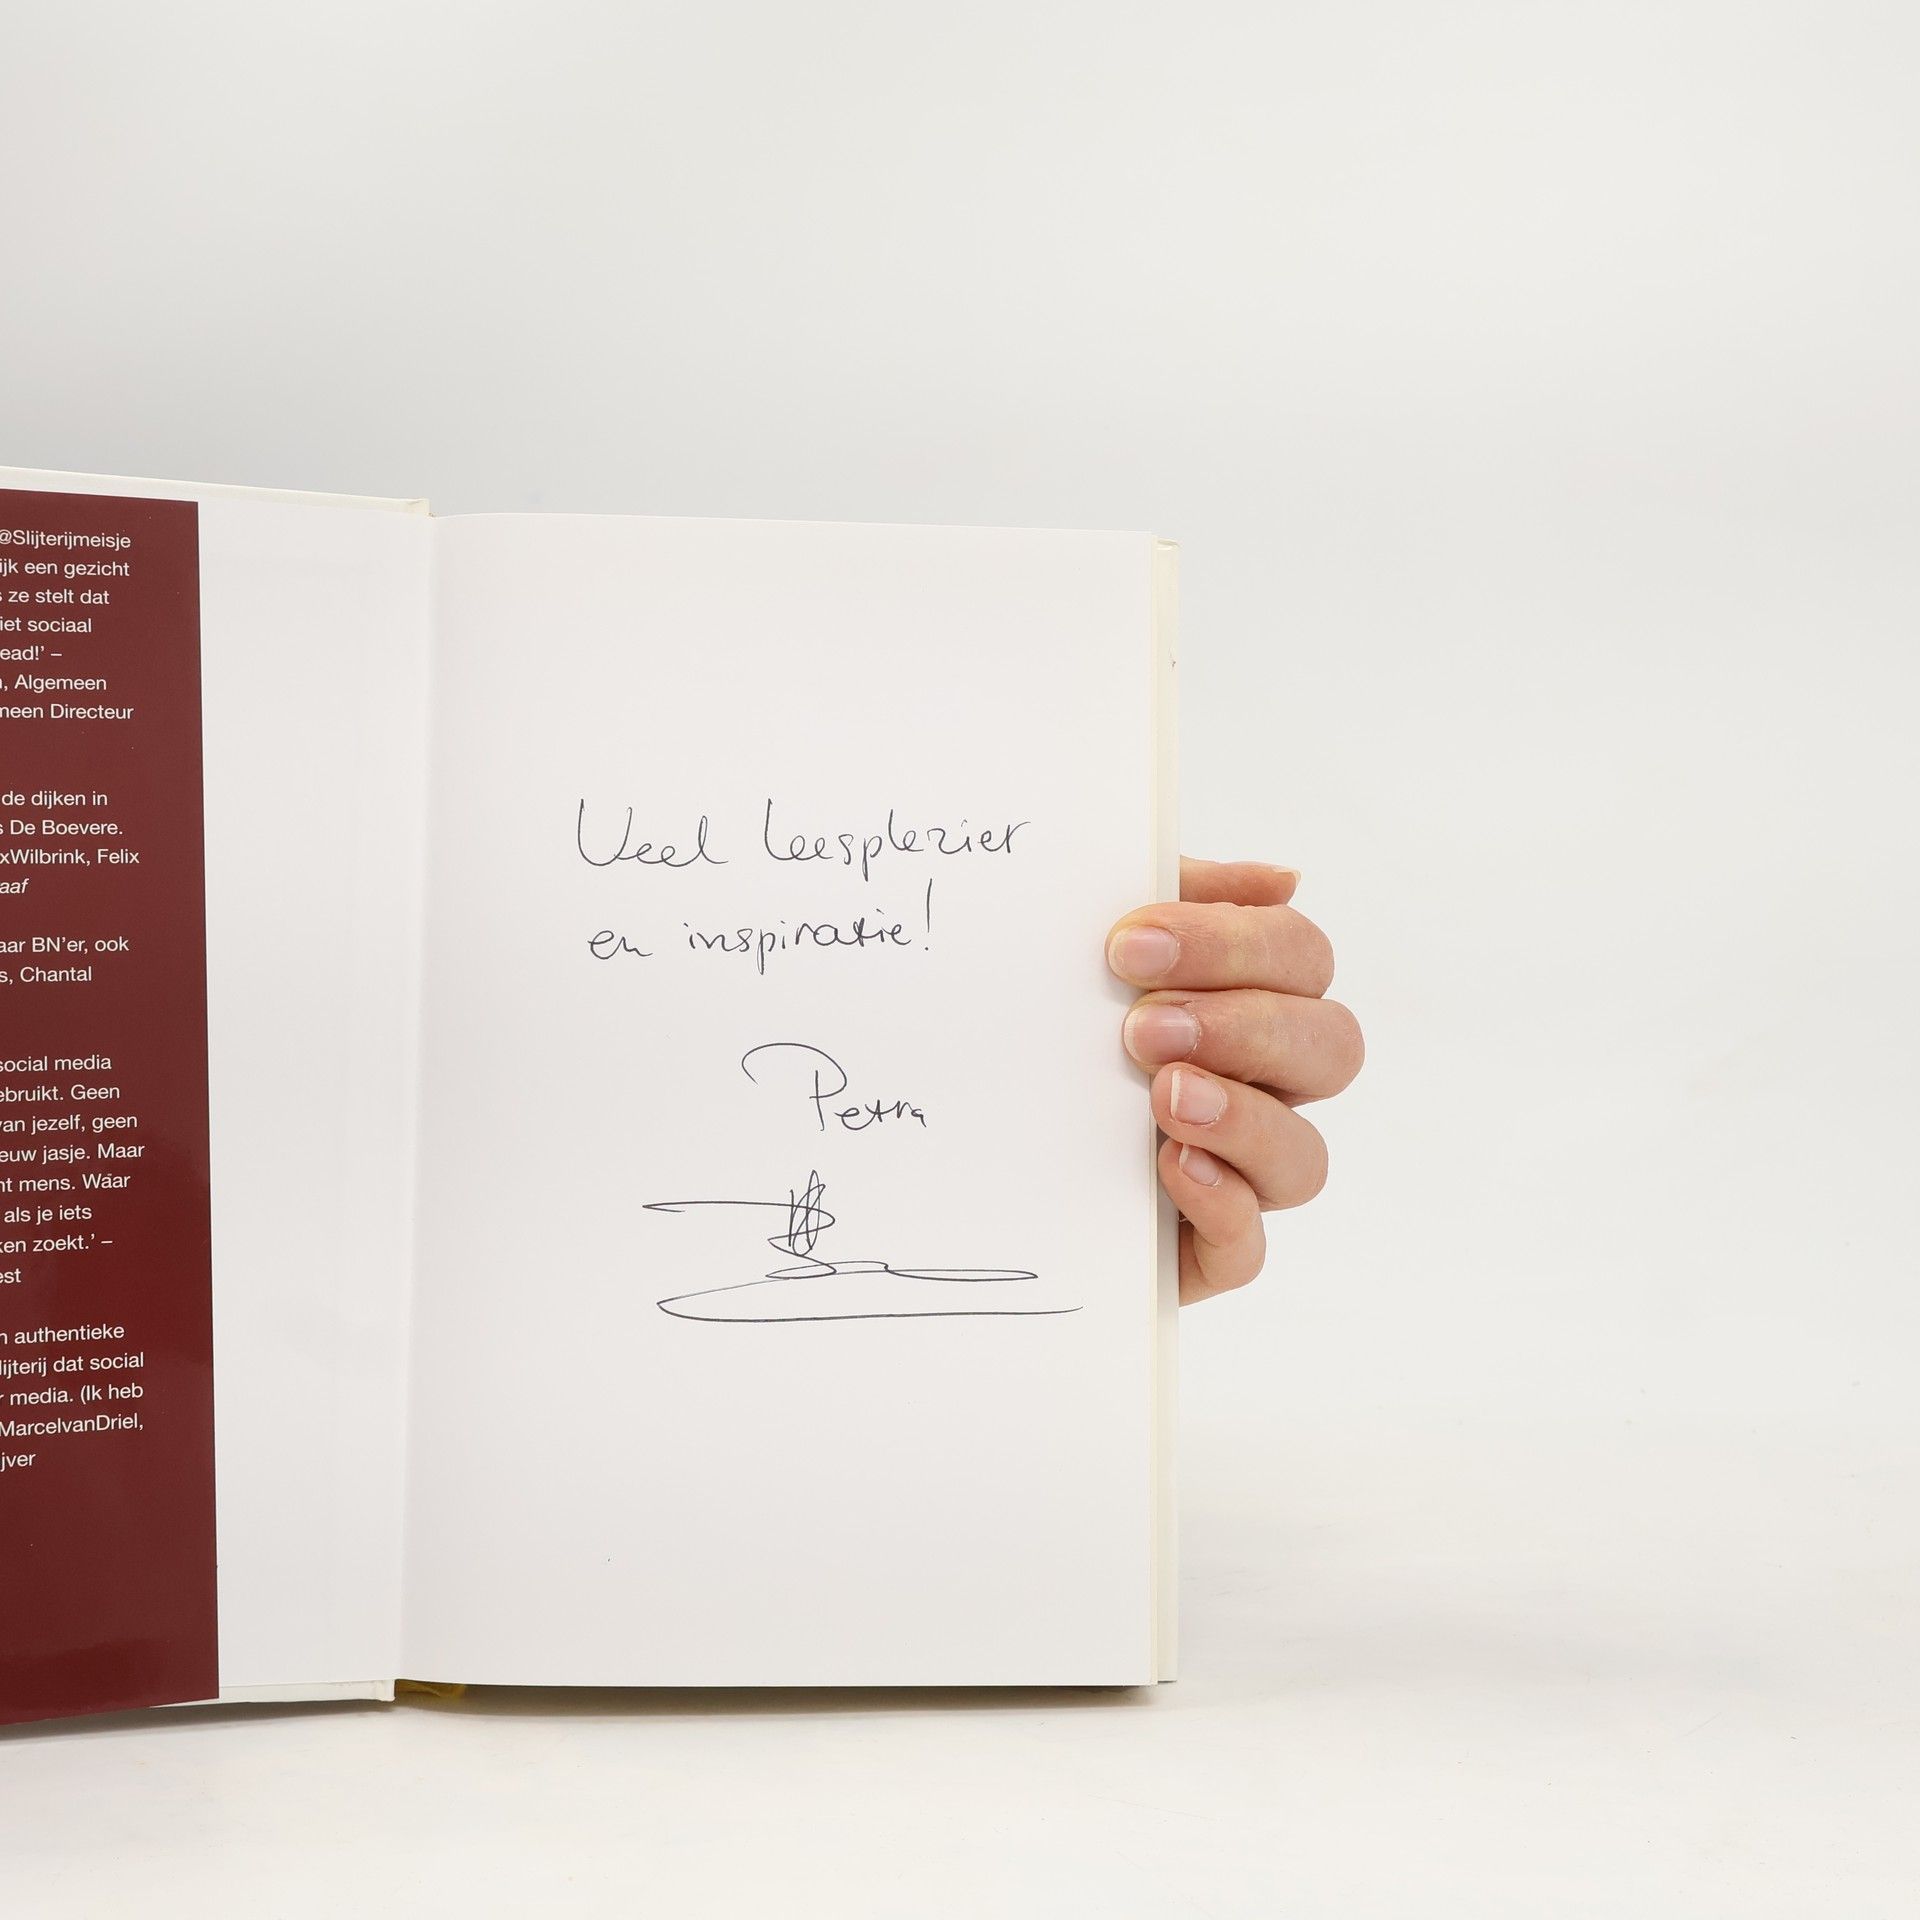 @Slijterijmeisje
ijk een gezicht
s ze stelt dat
iet sociaal
ead!' –
, Algemeen
meen Directeur
de dijken in
s De Boevere.
xWilbrink, Felix
aaf
aar BN'er, ook
s, Chantal
social media
ebruikt. Geen
van jezelf, geen
euw jasje. Maar
nt mens. Waar
als je iets
ken zoekt.' –
est
n authentieke
lijterij dat social
r media. (Ik heb
MarcelvanDriel,
ijver
Veel leesplezier
en inspiratie!
Petra